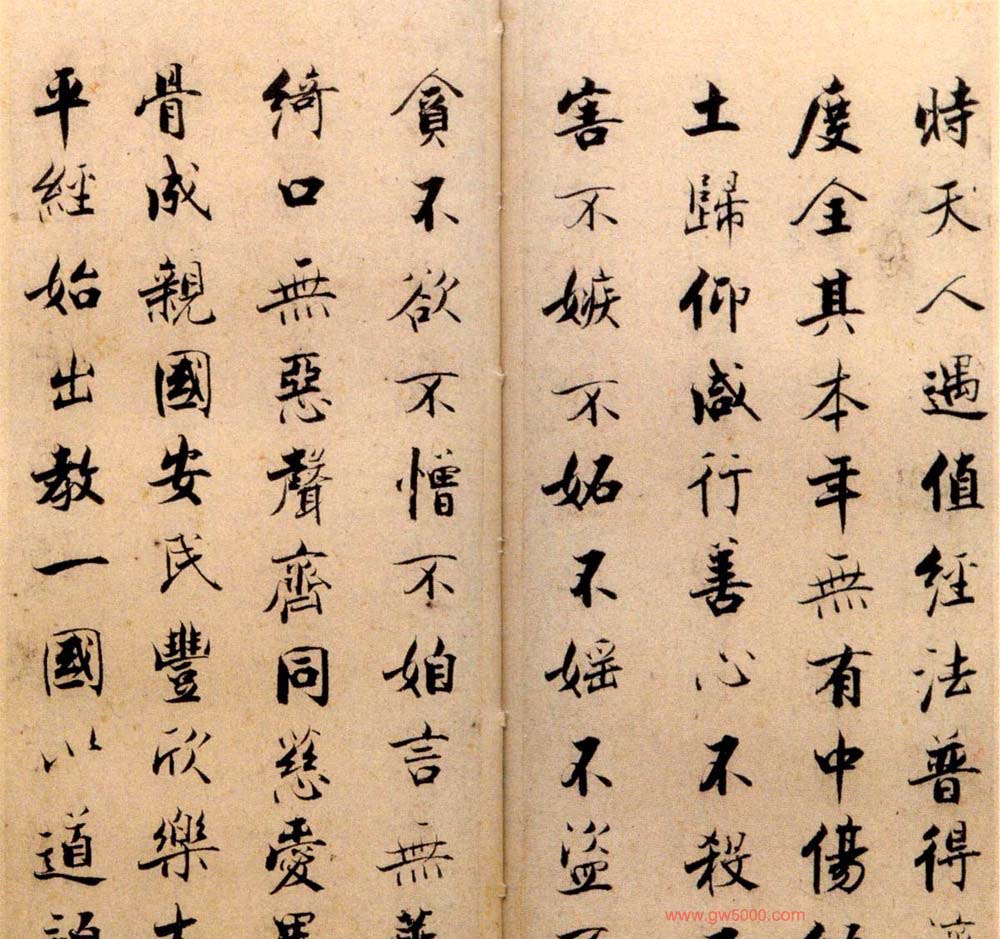 時天人遇值經法普得
度全其本年無有中傷
土歸仰咸行善心不殺不
害不嫉不妬不婬不盜不
貪不欲不憎不㛂言無華
綺口無惡聲齊同慈愛異
骨成親國安民豐欣樂太
平經始出教一國以道
www.gw5000.com